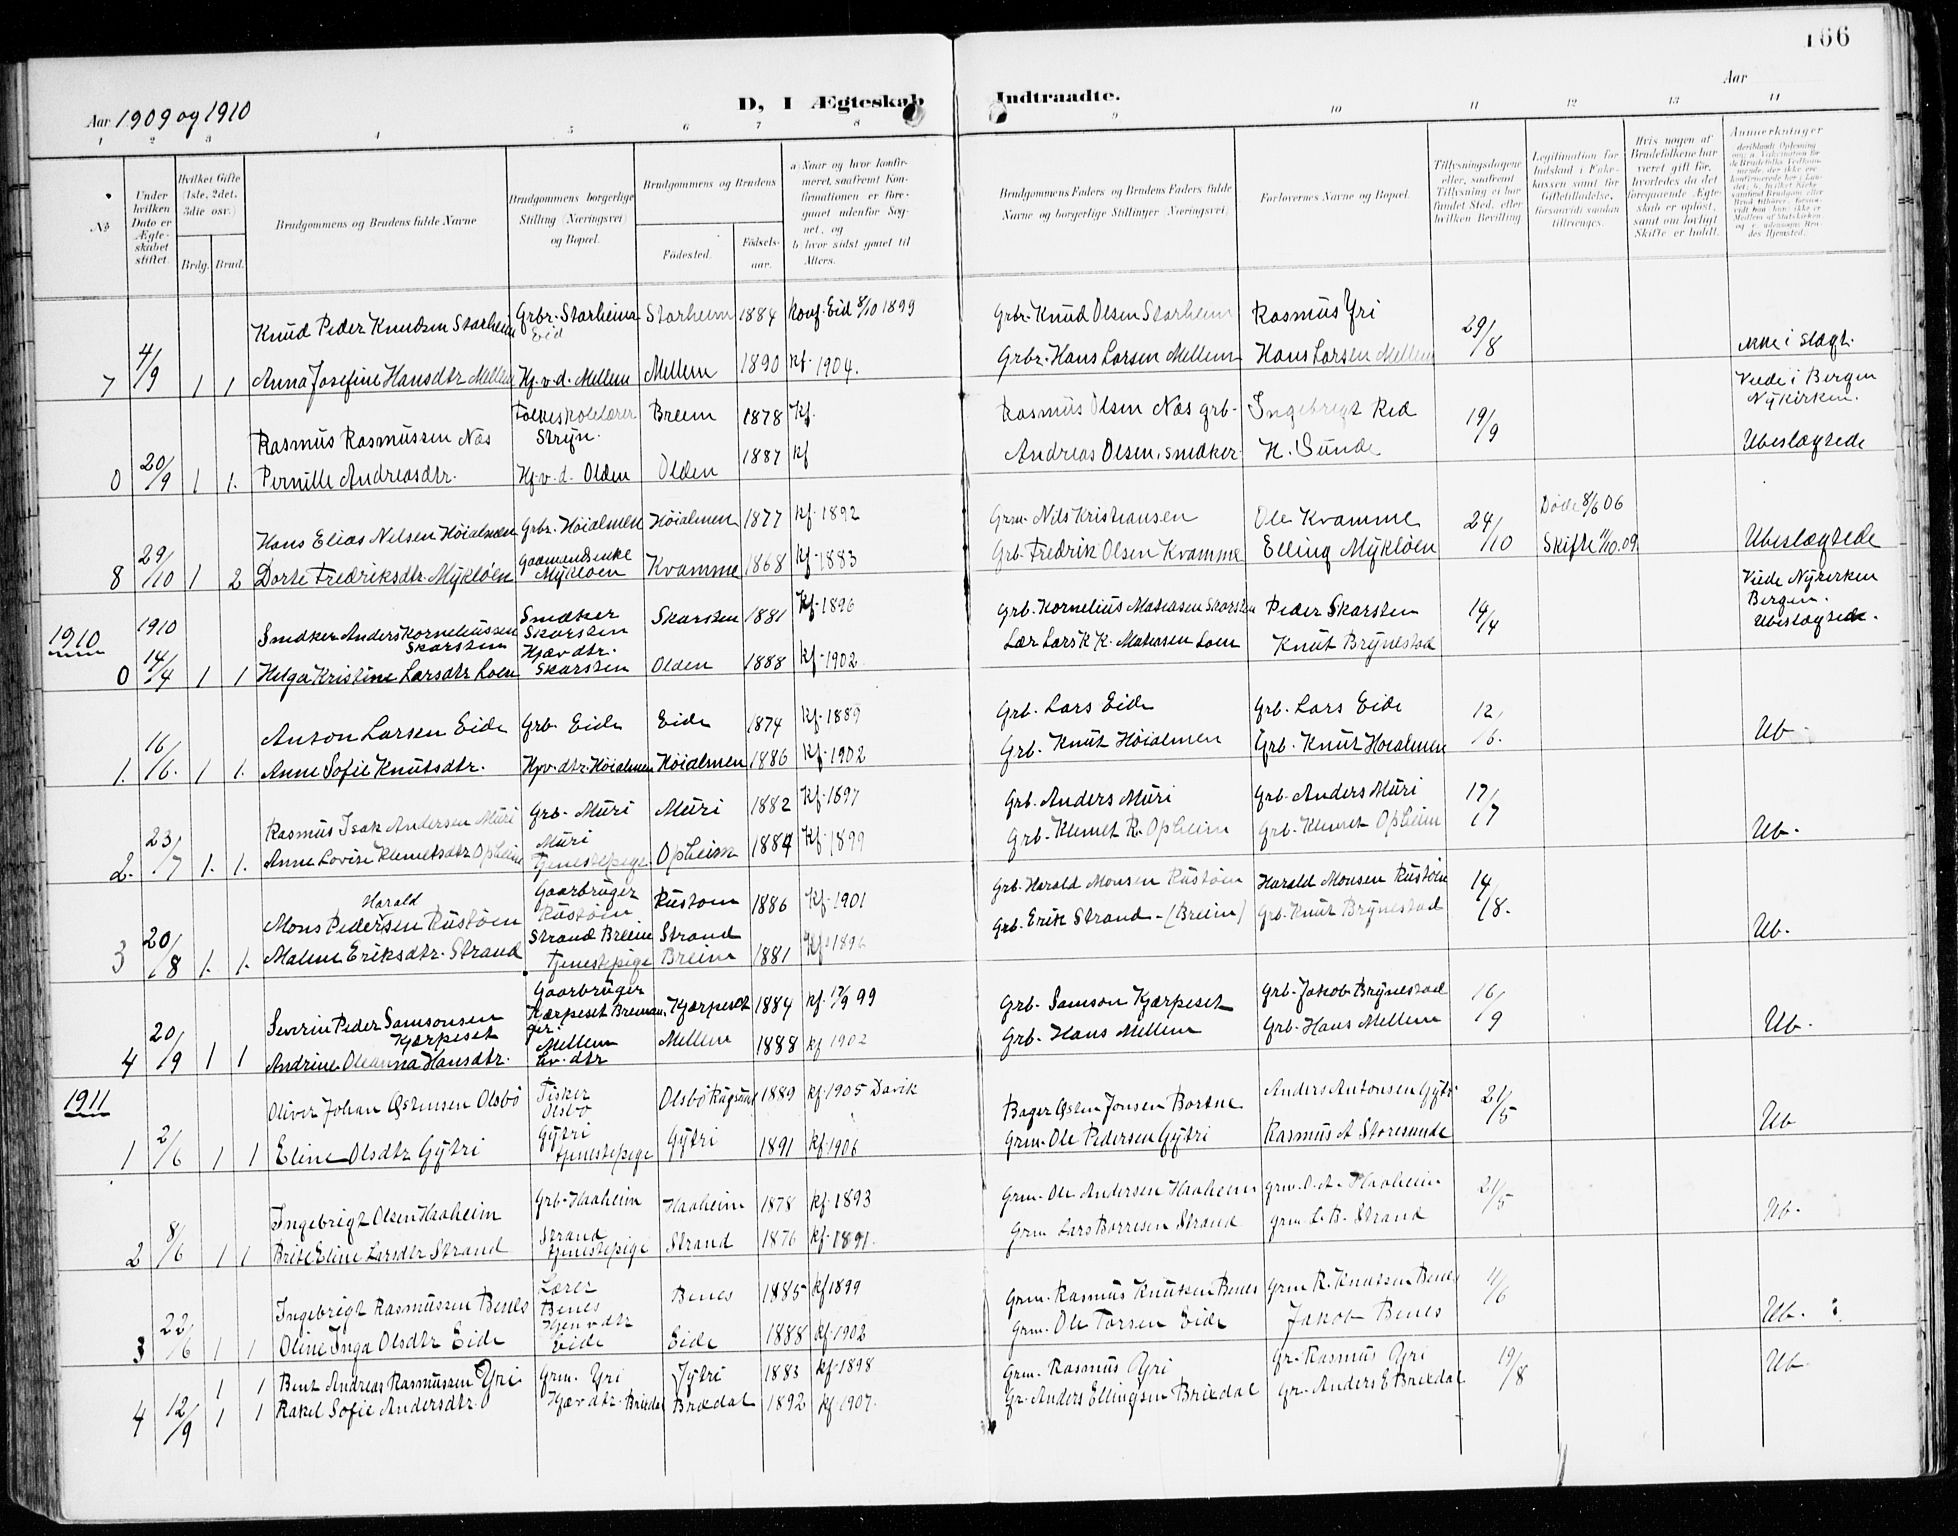 166
Aar 1909 og 1910
D, I Ægteskab Indtraadte.
Aar
1 2 3 4 5 6 7 8 9 10 11 12 13 14
No
Under hvilken Dato er Ægteskabet stiftet.
Hvilket Gifte (1ste, 2det, 3die osv.)
Brdg. Brud.
Brudgommens og Brudens fulde Navne
Brudgommens borgerlige Stilling (Næringsvei) og Bopæl.
Brudgommens og Brudens
Fødested. Fødselsaar.
a) Naar og hvor konfirmeret, saafremt Konfirmationen er foregaaet udenfor Sognet, og
b) hvor sidst gaaet til Alters.
Brudgommens Faders og Brudens Faders fulde Navne og borgerlige Stillinger (Næringsvei)
Forlovernes Navne og Bopæl.
Tillysningsdagene eller, saafremt Tillysning ei har fundet Sted, efter hvilken Bevilling.
Legitimation for Indskud i Enkekassen samt for Giftetilladelse, forsaavidt saadan tiltrænges.
Hvis nogen af Brudefolkene har været gift før, hvorledes da det foregaaende Ægteskab er opløst, samt om lovligt Skifte er holdt.
Anmærkninger
Knud Peder Knudsen Starheim Grbr. Starheim Eid Starheim 1884 konf. Eid 8/10 1899 Grbr. Knud Olsen Starheim Rasmus Yri 29/8
7 4/9 1 1 Anna Josefine Hansdtr Mellem Hj. v. d. Mellem Mellem 1890 kf. 1904. Grbr. Hans Larsen Mellem Hans Larsen Mellem ikke i slægt.
Rasmus Rasmussen Nos Folkeskolelærer Stryn. Breim 1878 kf. Rasmus Olsen Nos grb. Ingebrigt Red 19/9 Viede i Bergen Nykirken.
0 20/9 1 1. Pernille Andreasdtr. Hj. v. d. Olden Olden 1887 kf Andreas Olsen, smedker. H. Sunde Ubeslægtede
Hans Elias Nelsen Høialmen Grbr. Høialmen Høialmen 1877 kf. 1892 Grm. Nils Kristiansen Ole Kvamme 24/10 Døde 8/6 06
8 29/10 1 2 Dorte Fredriksdtr Mykløen Gaarmandsenke Mykløen Kvamme 1868 kf. 1883 Grb. Fredrik Olsen Kvamme Elling Mykløen Skifte 11/10.09. Ubeslægtede
1910 1910 Smedker Anders Korneliussen Skarsten Smedker Skarsten Skarsten 1881 kf. 1896 Grb. Kornelius Matiasen Skarsten Peder Skarsten 14/4 Viede Nykirken Bergen.
0 14/4 1 1 Helga Kristine Larsdtr Loen Hjæv dtr. Skarsten Olden 1888 kf. 1902. Lær Lars K. K. Matiasen Loen Knut Brynestad Ubeslægtede.
Anton Larsen Eide Grb. Eide Eide 1874 kf. 1889 Grb. Lars Eide Grb. Lars Eide 12/6.
1. 16/6. 1 1. Anne Sofie Knutsdtr. Hjv. dtr. Høialmen Høialmen 1886 kf. 1902 Grb. Knut Høialmen Grb. Knut Høialmen Ub.
Rasmus Isak Andersen Muri Grb. Muri Muri 1882 kf. 1897 Grb. Anders Muri Grb. Anders Muri 17/7
2. 23/7 1. 1. Anne Lovise Klemetsdtr Opheim Muri tjenestepige. Opheim 1884 kf. 1899 Grb. Klemet R. Opheim Grb. Klemet Opheim Ub.
Mons Harald Pedersen Rustøen Gaarbruger Rustøen Rustoen 1886 kf. 1901 Grb. Harald Monsen Rustøen Harald Monsen Rustøen 14/8.
3 20/8 1. 1. Malene Eriksdtr. Strand Strand Breim tjenestepige Strand Breim 1881 kf. 1896 Grb. Erik Strand - (Breim) Grb. Knut Brynestad Ub.
Severin Peder Samsonsen Kjærpeset Gaarbruger Kjærpeset Kjærpeset 1884 kf. 17/9 99 Grb. Samson Kjærpeset Grb. Jakob Brynestad 16/9
4 20/9 1 1 Andrine Oleanna Hansdtr. Mellem hv. dtr Mellem 1888 kf 1902 Grb. Hans Mellem Grb. Hans Mellem Ub.
1911 Oliver Johan Østensen Olsbø Fisker Olsbø Olsbø 1889 kf. 1905 Davik Bager Østen Jonsen Bortne Anders Antonsen Gytri 21/5
1 2/6 1 1 Eline Olsdtr Gytri Gytri tjenestepige Gytri 1891 kf. 1906 Grm. Ole Pedersen Gytri Rasmus A Storesunde Ub
Ingebrigt Olsen Haaheim Grb. Haaheim Haaheim 1878 kf. 1893 Grm. Ole Andersen Haaheim grm. O. A. Haaheim 21/5
2 8/6 1 1 Brite Eline Larsdtr Strand Strand tjenestepige Strand 1876 kf. 1891. Grm. Lars Borresen Strand grm. L. B. Strand Ub.
Ingebrigt Rasmussen Benes Lærer Benes Benes 1885 kf 1899 Grm. Rasmus Knutsen Benes Grm R. Knutsen Benes 11/6
3 22/6 1 1 Oline Inga Olsdtr Eide Hjem v dtr Eide Eide 1888 kf. 1902 Grm. Ole Torsen Eide Jakob Benes Ub.
1 1 Bent Andreas Rasmussen Yri Grm. Yri Jytri 1883 kf. 1898 Grm. Rasmus Yri Gr. Rasmus Yri 19/8 Ub.
4 12/9 1 1 Rakel Sofie Andersdtr. Hjæv dtr. Brixdal Brixdal 1892 kf. 1907. Gr. Anders Ellingsen Brixdal Gr. Anders E Brixdal